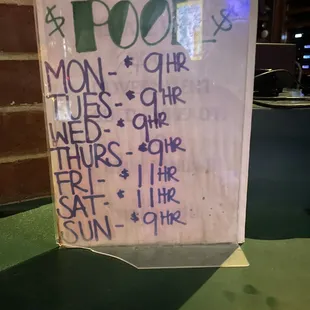 $ POOL $
MON - $9 HR
TUES - $9 HR
WED - $9 HR
THURS - $9 HR
FRI - $11 HR
SAT - $11 HR
SUN - $9 HR